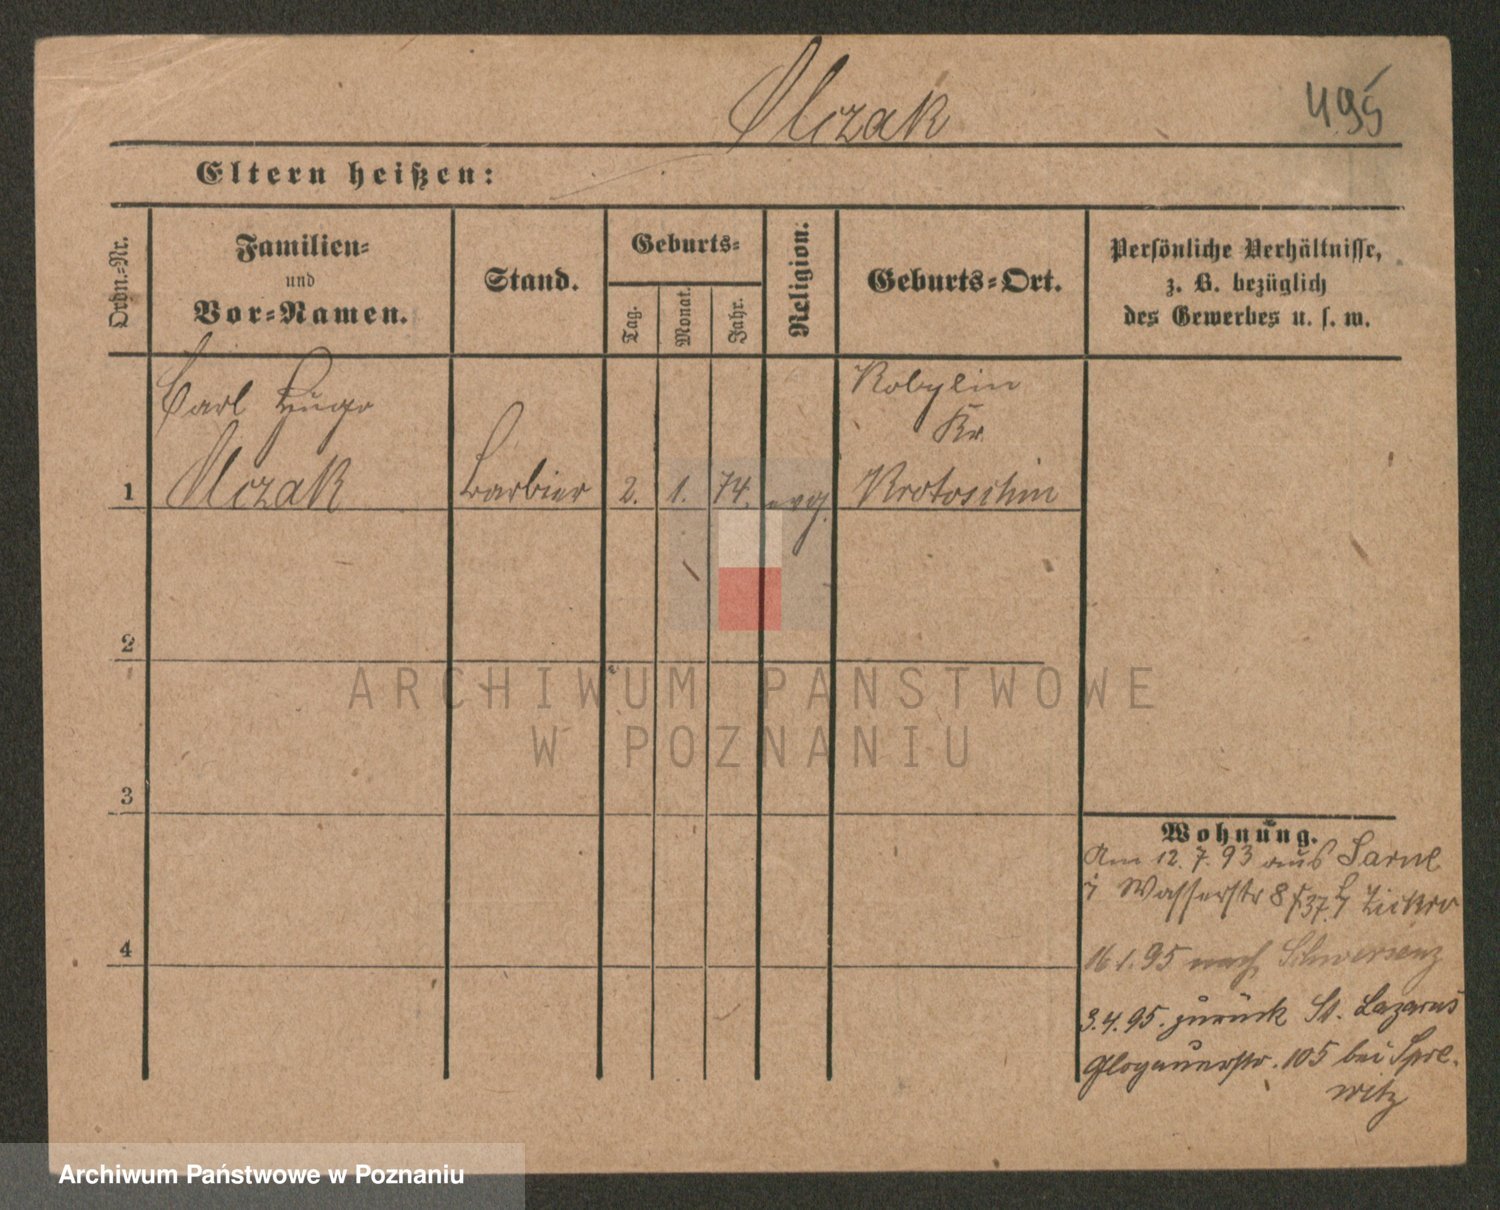 Olczak
495
Eltern heißen:
Ordn.-Nr.
Familien-
und
Vor-Namen.
Stand.
Geburts-
Tag.
Monat.
Jahr.
Religion.
Geburts-Ort.
Persönliche Verhältnisse,
z. B. bezüglich
des Gewerbes u. s. w.
Carl Hugo
Olczak
1
Barbier
2.
1.
74.
evg.
Kobylin
Kr.
Krotoschin
2
3
4
Wohnung.
Am 12.7.93 aus Sarne
Wasserstr 8
16.1.95 nach Schwersenz
3.4.95. zurück St. Lazarus
Glogauerstr. 105 bei Spre-
witz
ARCHIWUM PAŃSTWOWE
W POZNANIU
Archiwum Państwowe w Poznaniu